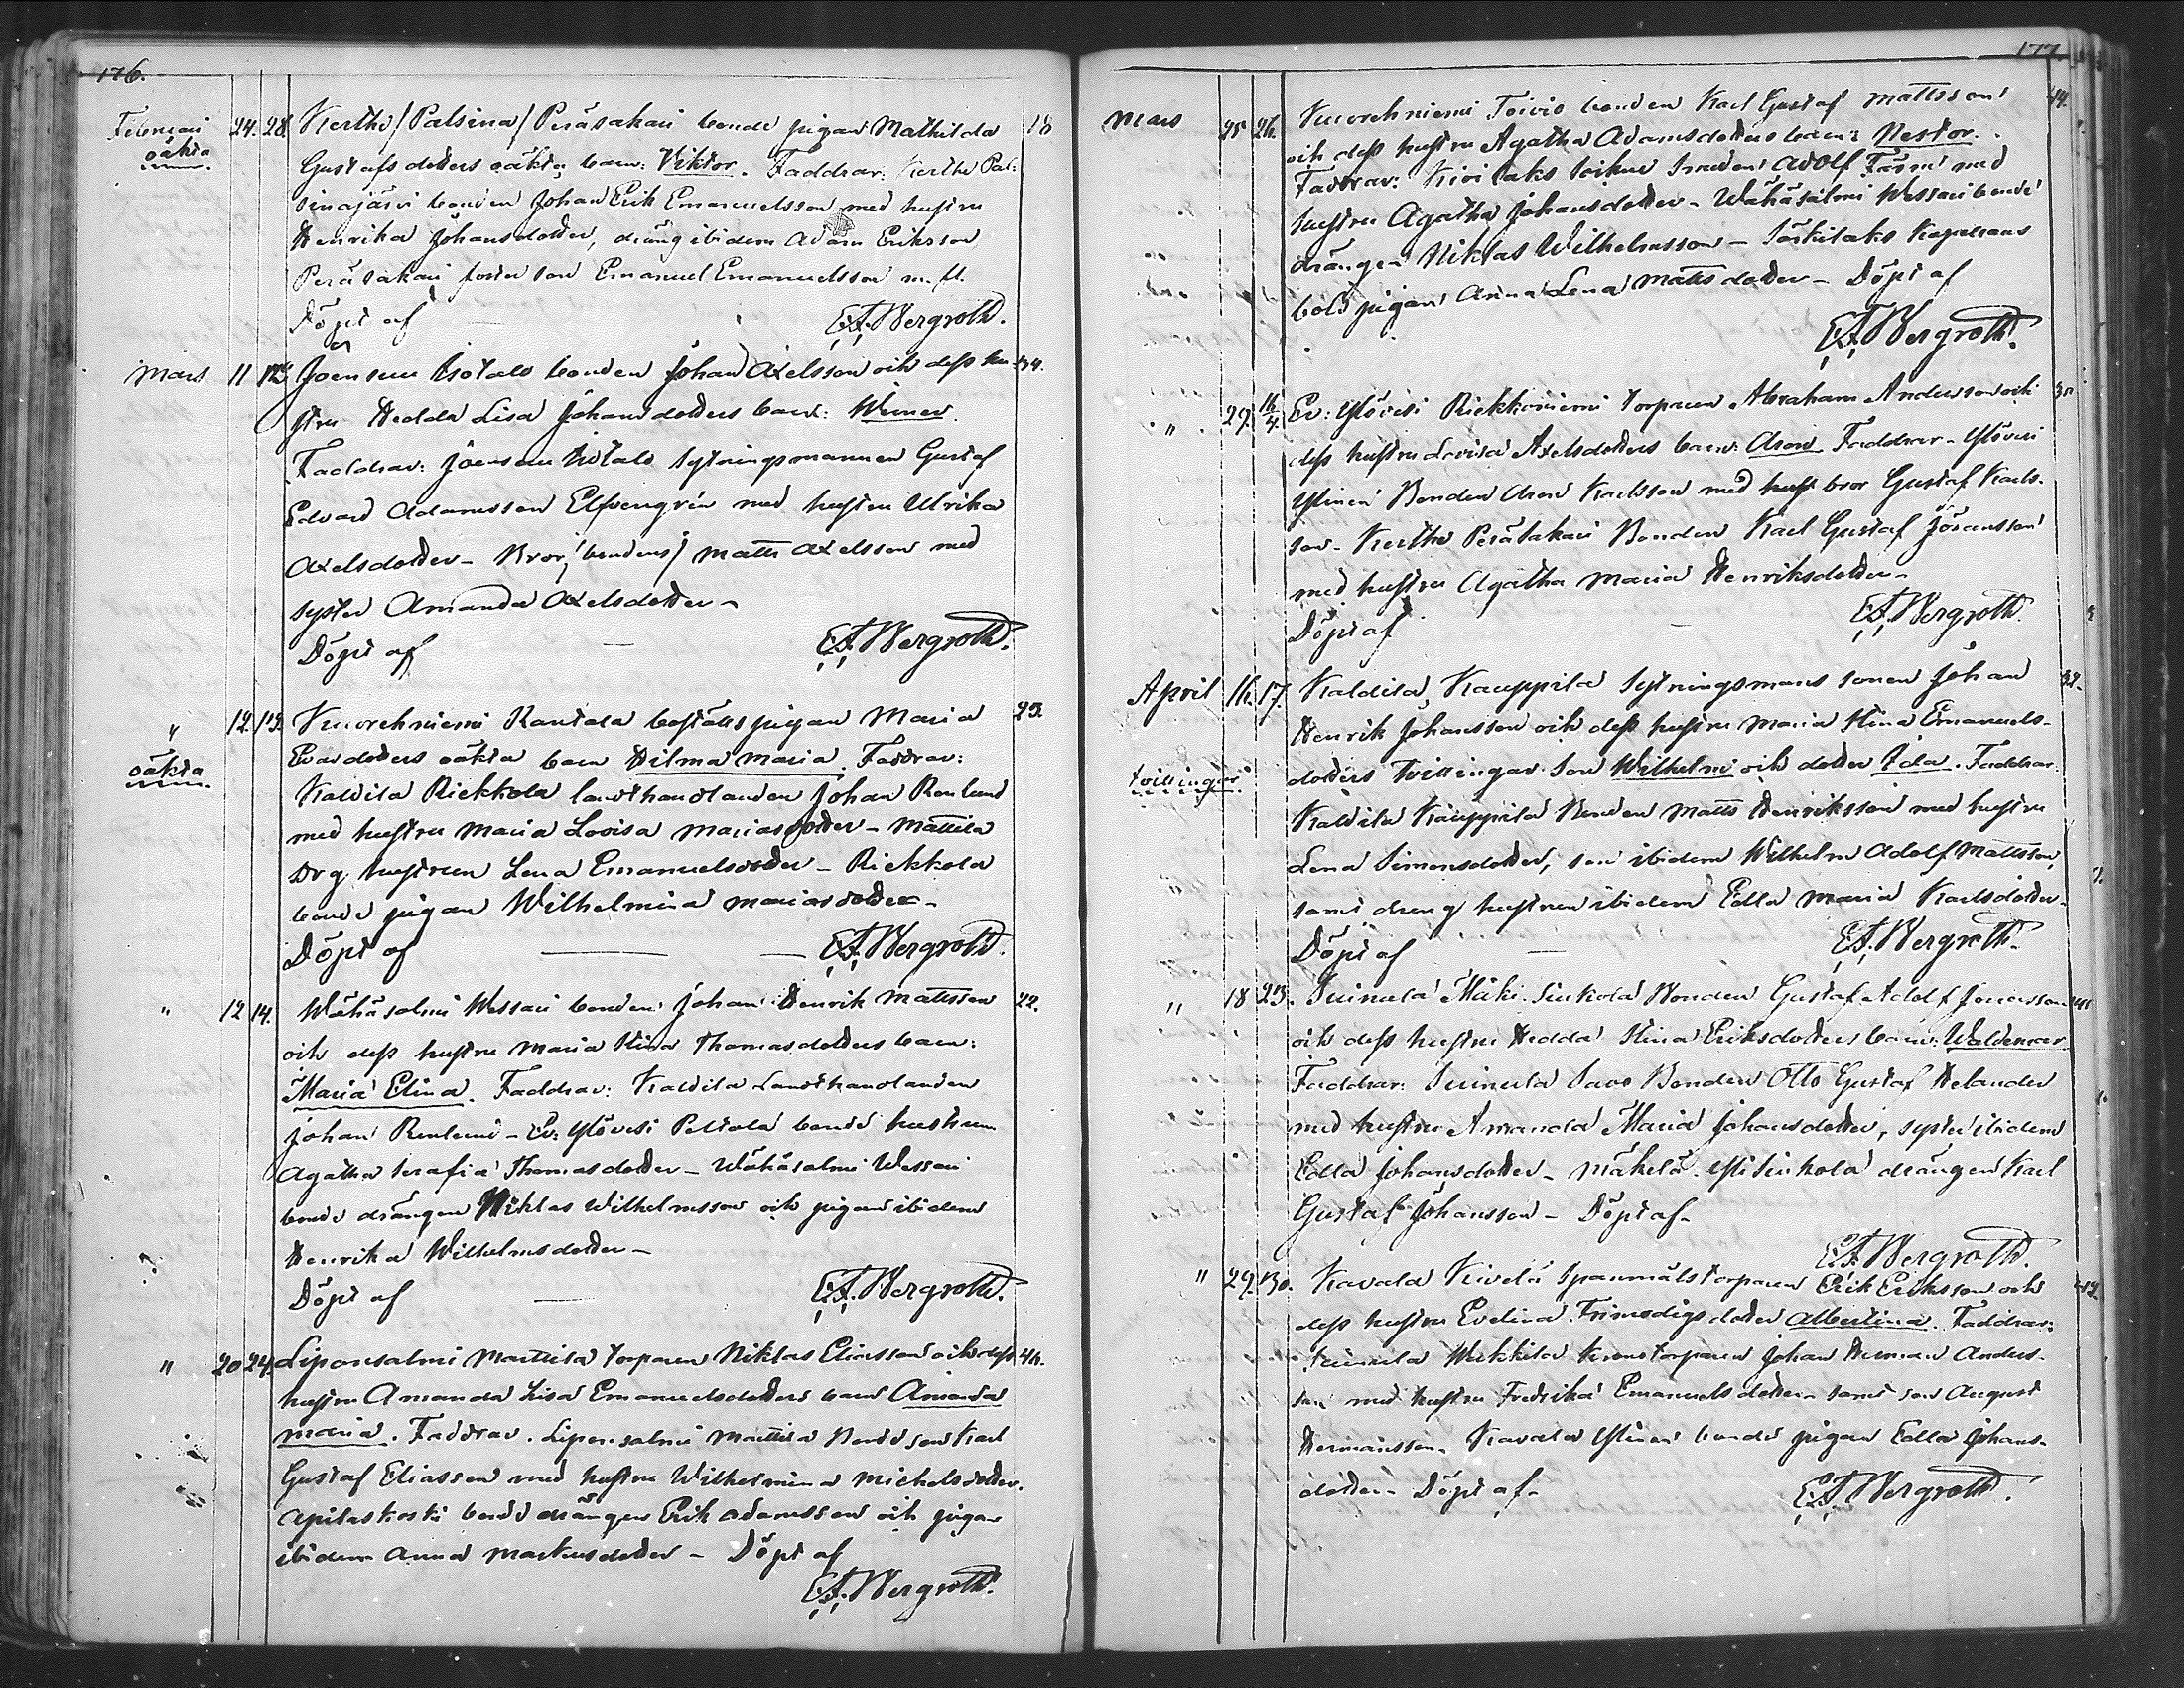 176.
Februari 24. 28. Kerthe /Palsina/ Peräsakari bonde pigan Mathilda 18
oäkta Gustafsdotters oäkta barn: Viktor. Faddrar: Kerthe Pal-
sinajärvi bonden Johan Erik Emanuelsson med hustru
Henrika Johansdotter, dräng ibidem Adam Eriksson
Peräsakari foster son Emanuel Emanuelsson m. fl.
Döpt af E.A. Bergroth.
Mars 11 12 Joensuu Isotalo bonden Johan Axelsson och dess hu- 34.
stru Hedda Lisa Johansdotters barn: Werner.
Faddrar: Joensuu Isotalo sytningsmannen Gustaf
Edvard Adamsson Elfvengrén med hustru Ulrika
Axelsdotter – Bror /bondens/ Matts Axelsson med
syster Amanda Axelsdotter –
Döpt af E.A. Bergroth.
" 12. 13. Kuorehniemi Rantala pigan Maria 23.
oäkta Evasdotters oäkta barn Hilma Maria. Faddrar:
Kaldila Riekkola landthandlanden Johan Renlund
med hustru Maria Lovisa Mariasdotter – Mattila
drg hustrun Lena Emanuelsdotter – Riekkola
bonde pigan Wilhelmina Mariasdotter –
Döpt af E.A. Bergroth.
" 12 14. Wähäsalmi Wessari bonden Johan Henrik Mattsson 22.
och dess hustru Maria Stina Thomasdotters barn:
Maria Elina. Faddrar: Kaldila Landthandlanden
Johan Renlund – Ev: Ylövesi Peltola bonde hustrun
Agatha Serafia Thomasdotter – Wähäsalmi Wessari
bonde drängen Niklas Wilhelmsson och pigan ibidem
Henrika Wilhelmsdotter –
Döpt af E.A. Bergroth.
" 20 24. Liponsalmi Mattila torparen Niklas Eliasson och dess 46.
hustru Amanda Lisa Emanuelsdotters barn Amanda
Maria. Faddrar. Liponsalmi Mattila Bonde son Karl
Gustaf Eliasson med hustru Wilhelmina Michelsdotter.
Apilaskoski bonde drängen Erik Adamsson och pigan
ibidem Anna Markusdotter – Döpt af
E.A. Bergroth.
177.
Mars 25 26. Kuorehniemi Toivio bonden Karl Gustaf Mattsson 44.
och dess hustru Agatha Adamsdotters barn: Nestor.
Faddrar: Kivilaks Adolf med
hustru Agatha Johansdotter – Wähäsalmi Wessari bonde
drängen Niklas Wilhelmsson – Särkilaks Kapellans
bolds pigan Anna Lena Mattsdotter – Döpt af
E.A. Bergroth.
" 29. 16/4. Ev: Ylövesi Riekkoniemi torparen Abraham Andersson och
dess hustru Lovisa Axelsdotters barn: Aron. Faddrar – Ylövesi
Ylinen Bonden Aron Karlsson med bror Gustaf Karls-
son – Kerthe Peräsakari Bonden Karl Gustaf Göransson
med hustru Agatha Maria Henriksdotter –
Döpt af E.A. Bergroth.
April 16. 17. Kaldila, Kauppila Sytningsmans sonen Johan 32.
Henrik Johansson och dess hustru Maria Stina Emanuels-
tvillingar dotters tvillingar Son Wilhelm och dotter Ida. Faddrar
Kaldila Kauppila Bonden Matts Henriksson med hustru
Lena Simonsdotter, son ibidem Wilhelm Adolf Mattsson,
samt dreng hustrun ibidem Edla Maria Karlsdotter –
Döpt af E.A. Bergroth.
" 18 23. Suinula Mäki-Sinkola Bonden Gustaf Adolf Jonasson
och dess hustru Hedda Stina Eriksdotters barn: Waldemar.
Faddrar: Suinula Savo Bonden Otto Gustaf Helander
med hustru Amanda Maria Johansdotter, syster ibidem
Edla Johansdotter – Mäkelä Yli Sinkola drängen Karl
Gustaf Johansson – Döpt af –
E.A. Bergroth.
" 29. 30. Kavala Kivelä Spanmålstorparen Erik Eriksson och 42.
dess hustru Evelina Frimodigsdotter Albertina. Faddrar:
Suinula Wekkila Kronotorparen Johan Herman Anders-
son med hustru Fredrika Emanuelsdotter – samt son August
Hermansson – Kavala Ylinen bonde pigan Edla Johans-
dotter – Döpt af – E.A. Bergroth.